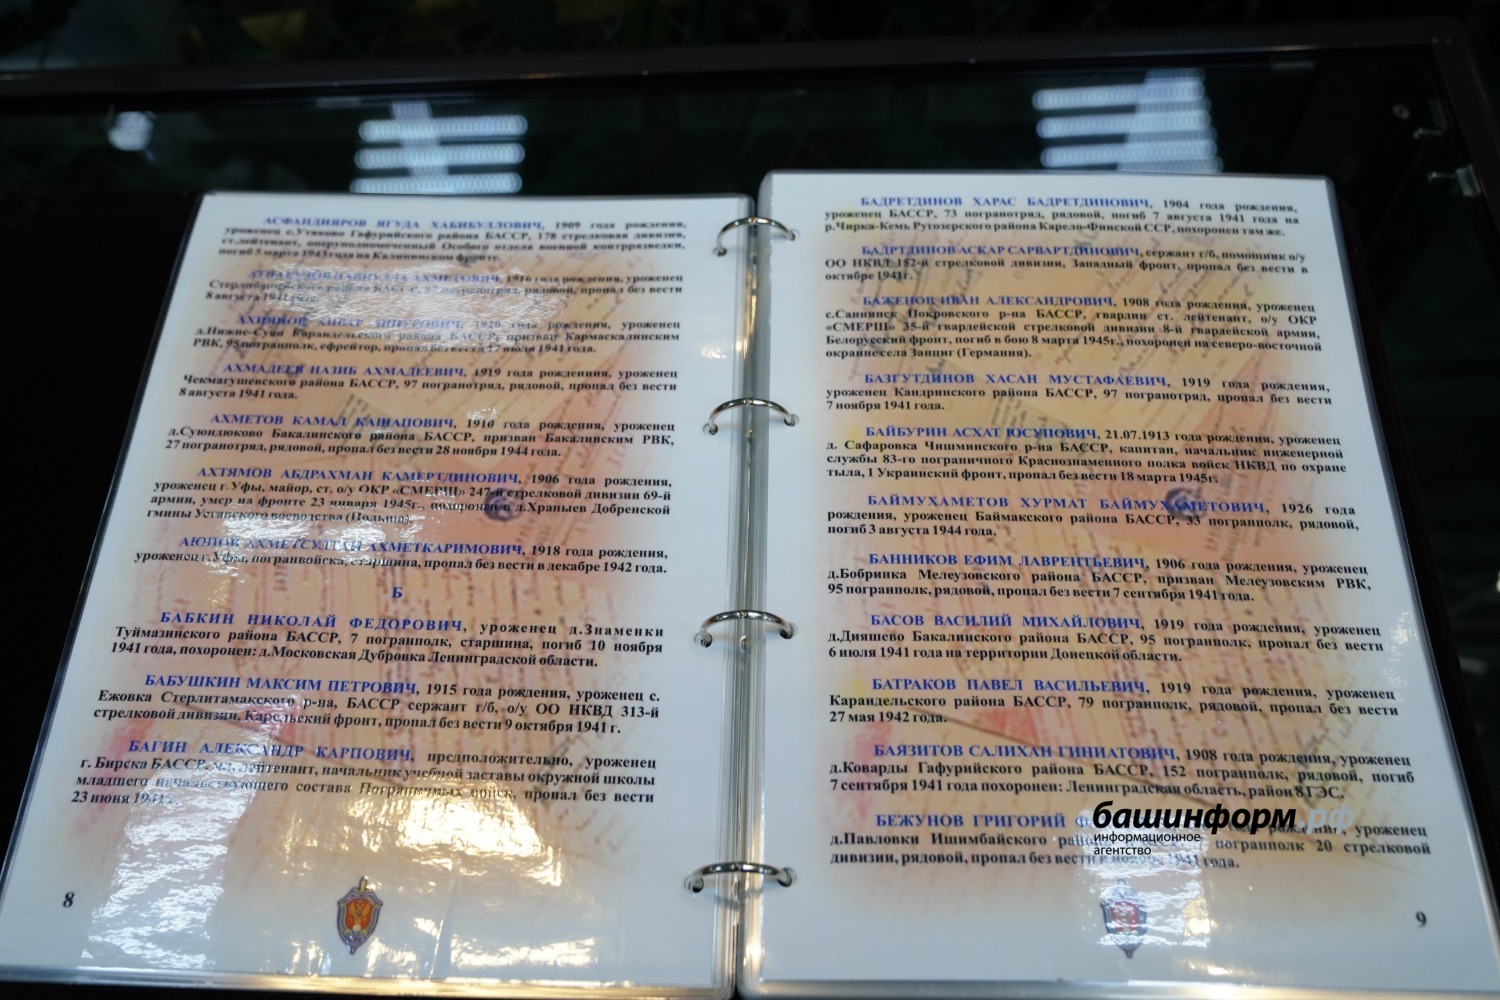 АСФАНДИЯРОВ ЯГУДА ХАБИБУЛЛОВИЧ, 1909 года рождения,
уроженец с.Утяково Гафурийского района БАССР, 178 стрелковая дивизия,
ст.лейтенант, оперуполномоченный Особого отдела военной контрразведки,
погиб 5 марта 1943 года на Калининском фронте.
АХМЕТОВИЧ, 1916 года рождения, уроженец
района БАССР, 97 погранотряд, рядовой, пропал без вести
8 августа 1941 года.
АХИЯНОВ АНВАР 1920 года рождения, уроженец
д.Нижне-Суян Караидельского района БАССР, призван Кармаскалинским
РВК, 95 погранполк, ефрейтор, пропал без вести 17 июля 1941 года.
АХМАДЕЕВ НАЗИБ АХМАДЕЕВИЧ, 1919 года рождения, уроженец
Чекмагушевского района БАССР, 97 погранотряд, рядовой, пропал без вести
8 августа 1941 года.
АХМЕТОВ КАМАЛ КАШАПОВИЧ, 1910 года рождения, уроженец
д.Суюндюково Бакалинского района БАССР, призван Бакалинским РВК,
27 погранотряд, рядовой, пропал без вести 28 ноября 1944 года.
АХТЯМОВ АБДРАХМАН КАМЕРТДИНОВИЧ, 1906 года рождения,
уроженец г.Уфы, майор, ст. о/у ОКР «СМЕРШ» 247-й стрелковой дивизии 69-й
армии, умер на фронте 23 января 1945г., похоронен в д.Храпыев Добренской
гмины Устявского воеводства (Польша).
АЮПОВ АХМЕТСУЛТАН АХМЕТКАРИМОВИЧ, 1918 года рождения,
уроженец г.Уфы, погранвойска, старшина, пропал без вести в декабре 1942 года.
Б
БАБКИН НИКОЛАЙ ФЕДОРОВИЧ, уроженец д.Знаменки
Туймазинского района БАССР, 7 погранполк, старшина, погиб 10 ноября
1941 года, похоронен: д.Московская Дубровка Ленинградской области.
БАБУШКИН МАКСИМ ПЕТРОВИЧ, 1915 года рождения, уроженец с.
Ежовка Стерлитамакского р-на, БАССР сержант г/б, о/у ОО НКВД 313-й
стрелковой дивизии, Карельский фронт, пропал без вести 9 октября 1941 г.
БАГИН АЛЕКСАНДР КАРПОВИЧ, предположительно, уроженец
г. Бирска БАССР, мл. лейтенант, начальник учебной заставы окружной школы
младшего начальствующего состава Пограничных войск, пропал без вести
23 июня 1941 г.
8
БАДРЕТДИНОВ ХАРАС БАДРЕТДИНОВИЧ, 1904 года рождения,
уроженец БАССР, 73 погранотряд, рядовой, погиб 7 августа 1941 года на
р.Чирка-Кемь Ругозерского района Карело-Финской ССР, похоронен там же.
БАДРТДИНОВ АСКАР САРВАРТДИНОВИЧ, сержант г/б, помощник о/у
ОО НКВД 152-й стрелковой дивизии, Западный фронт, пропал без вести в
октябре 1941г.
БАЖЕНОВ ИВАН АЛЕКСАНДРОВИЧ, 1908 года рождения, уроженец
с.Саннинск Покровского р-на БАССР, гвардии ст. лейтенант, о/у ОКР
«СМЕРШ» 35-й гвардейской стрелковой дивизии 8-й гвардейской армии,
Белорусский фронт, погиб в бою 8 марта 1945г., похоронен на северо-восточной
окраине села Занциг (Германия).
БАЗГУТДИНОВ ХАСАН МУСТАФАЕВИЧ, 1919 года рождения,
уроженец Кандринского района БАССР, 97 погранотряд, пропал без вести
7 ноября 1941 года.
БАЙБУРИН АСХАТ ЮСУПОВИЧ, 21.07.1913 года рождения, уроженец
д. Сафаровка Чишминского р-на БАССР, капитан, начальник инженерной
службы 83-го пограничного Краснознаменного полка войск НКВД по охране
тыла, 1 Украинский фронт, пропал без вести 18 марта 1945г.
БАЙМУХАМЕТОВ ХУРМАТ БАЙМУХАМЕТОВИЧ, 1926 года
рождения, уроженец Баймакского района БАССР, 33 погранполк, рядовой,
погиб 3 августа 1944 года.
БАННИКОВ ЕФИМ ЛАВРЕНТЬЕВИЧ, 1906 года рождения, уроженец
д.Бобринка Мелеузовского района БАССР, призван Мелеузовским РВК,
95 погранполк, рядовой, пропал без вести 7 сентября 1941 года.
БАСОВ ВАСИЛИЙ МИХАЙЛОВИЧ, 1919 года рождения, уроженец
д.Дияшево Бакалинского района БАССР, 95 погранполк, пропал без вести
6 июля 1941 года на территории Донецкой области.
БАТРАКОВ ПАВЕЛ ВАСИЛЬЕВИЧ, 1919 года рождения, уроженец
Караидельского района БАССР, 79 погранполк, рядовой, пропал без вести
27 мая 1942 года.
БАЯЗИТОВ САЛИХАН ГИНИАТОВИЧ, 1908 года рождения, уроженец
д.Коварды Гафурийского района БАССР, 152 погранполк, рядовой, погиб
7 сентября 1941 года похоронен: Ленинградская область, район 8 ГЭС.
БЕЖУНОВ ГРИГОРИЙ рождения, уроженец
д.Павловки Ишимбайского погранполк 20 стрелковой
дивизии, рядовой, пропал без вести в ноябре 1941 года.
9
башинформ.рф
информационное
агентство